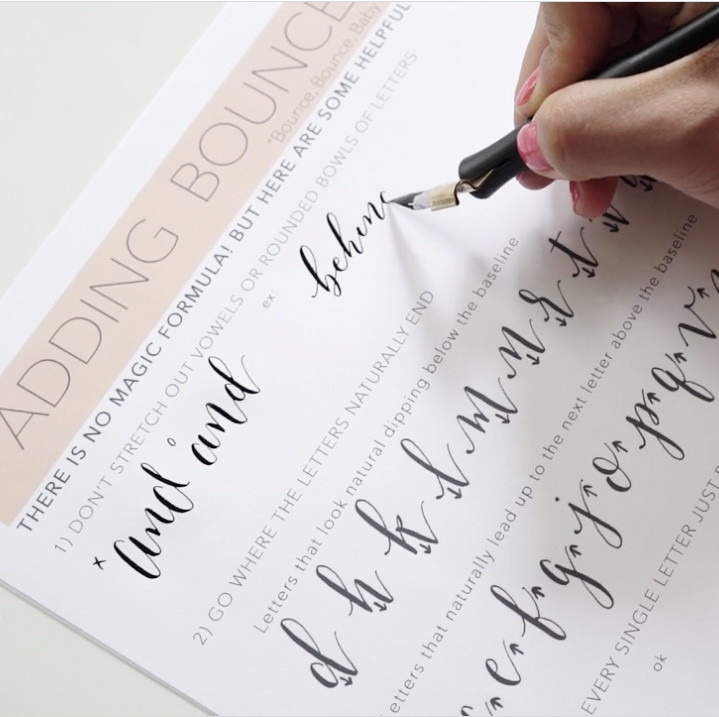 ADDING BOUNCE
*Bounce, Bounce, Baby
THERE IS NO MAGIC FORMULA! BUT HERE ARE SOME HELPFUL
1) DON'T STRETCH OUT VOWELS OR ROUNDED BOWLS OF LETTERS
x and and
ex: behin
2) GO WHERE THE LETTERS NATURALLY END
Letters that look natural dipping below the baseline
d h k l m n r t
Letters that naturally lead up to the next letter above the baseline
c e f g j o p q v
EVERY SINGLE LETTER JUST
ok